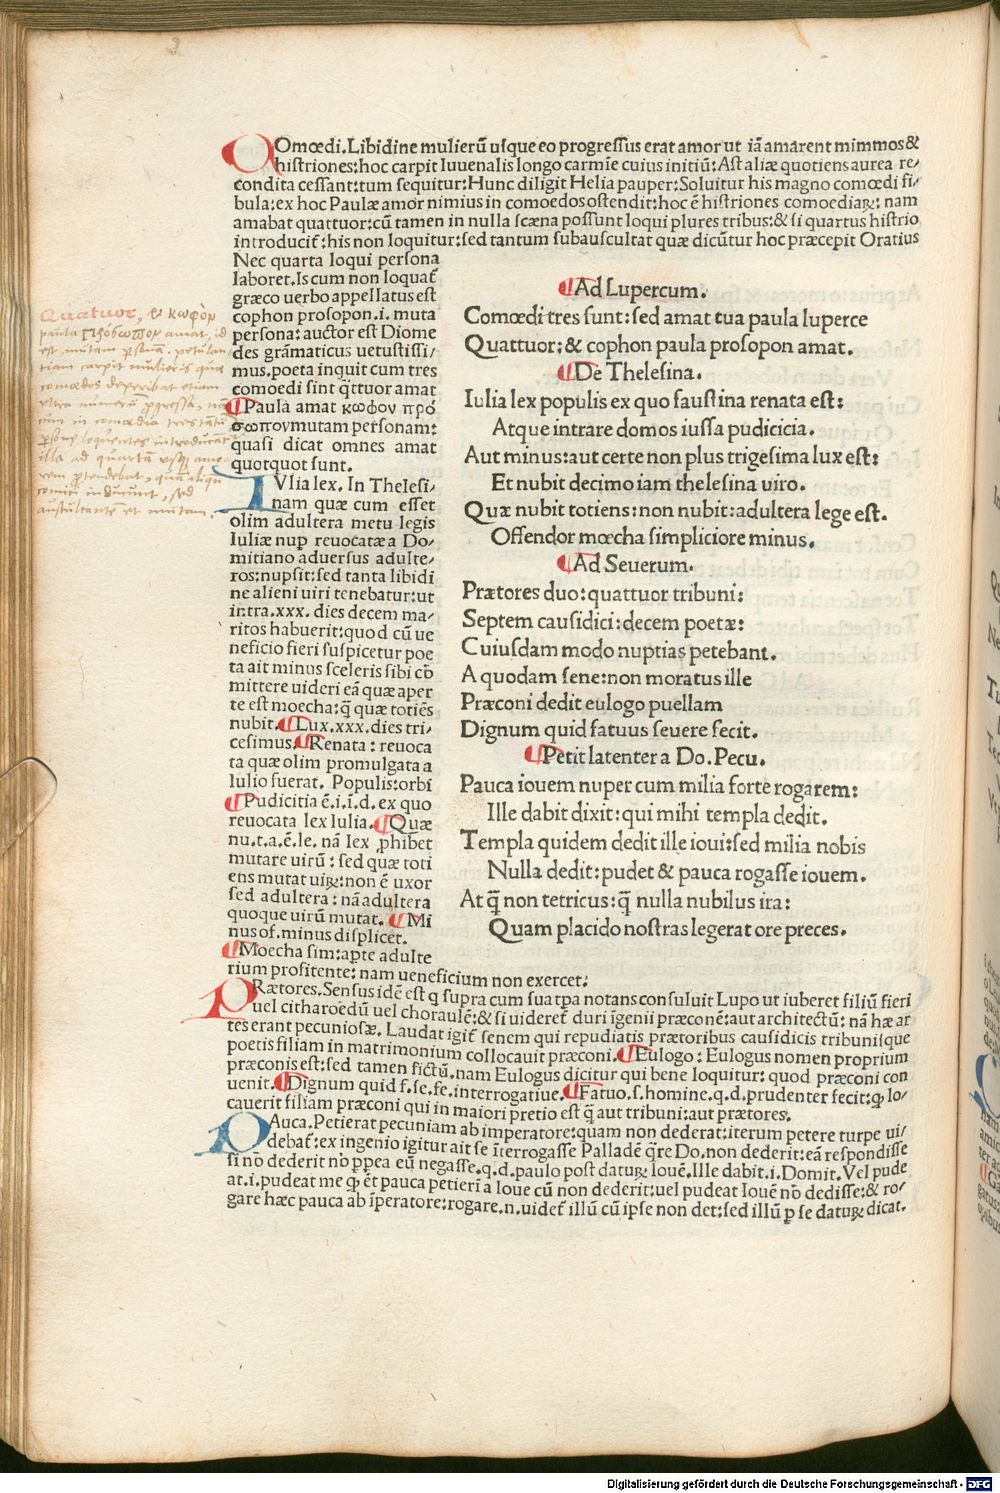 COmœdi. Libidine mulierū usque eo progressus erat amor ut iā amarent mimmos &
histriones: hoc carpit Iuuenalis longo carmīe cuius initiū: Ast aliæ quotiens aurea re/
condita cessant: tum sequitur: Hunc diligit Helia pauper: Soluitur his magno comœdi fi/
bula: ex hoc Paulæ amor nimius in comoedos ostendit: hoc ē histriones comoediaꝝ: nam
amabat quattuor: cū tamen in nulla scæna possunt loqui plures tribus: & si quartus histrio
introducit̄: his non loquitur: sed tantum subauscultat quæ dicūtur hoc præcepit Oratius
Nec quarta loqui persona
laboret. Is cum non loquat̄
græco uerbo appellatus est
cophon prosopon. i. muta
persona: auctor est Diome
des grāmaticus uetustissi/
mus. poeta inquit cum tres
comoedi sint q̄ttuor amat
¶Paula amat κωφον πρό
σωπον mutam personam:
quasi dicat omnes amat
quotquot sunt.
IVlia lex. In Thelesi/
nam quæ cum esset
olim adultera metu legis
Iuliæ nup reuocatæ a Do/
mitiano aduersus adulte/
ros: nupsit: sed tanta libidi
ne alieni uiri tenebatur: ut
intra. xxx. dies decem ma/
ritos habuerit: quod cū ue
neficio fieri suspicetur poe
ta ait minus sceleris sibi cō
mittere uideri eā quæ aper
te est moecha: q̄ quæ totiēs
nubit. ¶Lux. xxx. dies tri/
cesimus. ¶Renata: reuoca
ta quæ olim promulgata a
Iulio fuerat. Populis: orbi
¶Pudicitia ē. i. i. d. ex quo
reuocata lex Iulia. ¶Quæ
nu. t. a. ē. le. nā lex ꝓhibet
mutare uirū: sed quæ toti
ens mutat uiꝝ: non ē uxor
sed adultera: nā adultera
quoque uirū mutat. ¶Mi
nus of. minus displicet.
¶Moecha sim: apte adulte
rium profitente: nam ueneficium non exercet:
¶Ad Lupercum.
Comœdi tres sunt: sed amat tua paula luperce
Quattuor: & cophon paula prosopon amat.
¶De Thelesina.
Iulia lex populis ex quo faustina renata est:
Atque intrare domos iussa pudicicia.
Aut minus: aut certe non plus trigesima lux est:
Et nubit decimo iam thelesina uiro.
Quæ nubit totiens: non nubit: adultera lege est.
Offendor mœcha simpliciore minus.
¶Ad Seuerum.
Prætores duo: quattuor tribuni:
Septem causidici: decem poetæ:
Cuiusdam modo nuptias petebant.
A quodam sene: non moratus ille
Præconi dedit eulogo puellam
Dignum quid fatuus seuere fecit.
¶Petit latenter a Do. Pecu.
Pauca iouem nuper cum milia forte rogarem:
Ille dabit dixit: qui mihi templa dedit.
Templa quidem dedit ille ioui: sed milia nobis
Nulla dedit: pudet & pauca rogasse iouem.
At q̄ non tetricus: q̄ nulla nubilus ira:
Quam placido nostras legerat ore preces.
PRætores. Sensus idē est q supra cum sua tpa notans consuluit Lupo ut iuberet filiū fieri
uel citharoedū uel choraulē: & si uideret̄ duri īgenii præconē: aut architectū: nā hæ ar
tes erant pecuniosæ. Laudat igit̄ senem qui repudiatis prætoribus causidicis tribunisque
poetis filiam in matrimonium collocauit præconi. ¶Eulogo: Eulogus nomen proprium
præconis est: sed tamen fictū. nam Eulogus dicitur qui bene loquitur: quod præconi con
uenit. ¶Dignum quid f. se. fe. interrogatiue. ¶Fatuo. s. homine. q. d. prudenter fecit: ꝙ lo/
cauerit filiam præconi qui in maiori pretio est q̄ aut tribuni: aut prætores.
PAuca. Petierat pecuniam ab imperatore: quam non dederat: iterum petere turpe ui/
debat̄: ex ingenio igitur ait se īterrogasse Palladē q̄re Do. non dederit: eā respondisse
si nō dederit nō ꝓpea eū negasse. q. d. paulo post datuꝝ Iouē. Ille dabit. i. Domit. Vel pude
at. i. pudeat me ꝙ et̄ pauca petierī a Ioue cū non dederit: uel pudeat Iouē nō dedisse: & ro/
gare hæc pauca ab īperatore: rogare. n. uidet̄ illū cū ipse non det: sed illū ꝑ se datuꝝ dicat.
Quatuor, et κωφὸν
paula πρόσωπον amat, id
est, mutam personam. petulan
tiam carpit mulieris quæ
comœdos deperibat etiam
ultra numerum progressa, nam
cum in comœdia tres tantum
personæ loquentes introducantur
illa ad quartam usque amo
rem protendebat, quam aliqui
comici inducunt, sed
auscultantem et mutam.
Digitalisierung gefördert durch die Deutsche Forschungsgemeinschaft - DFG